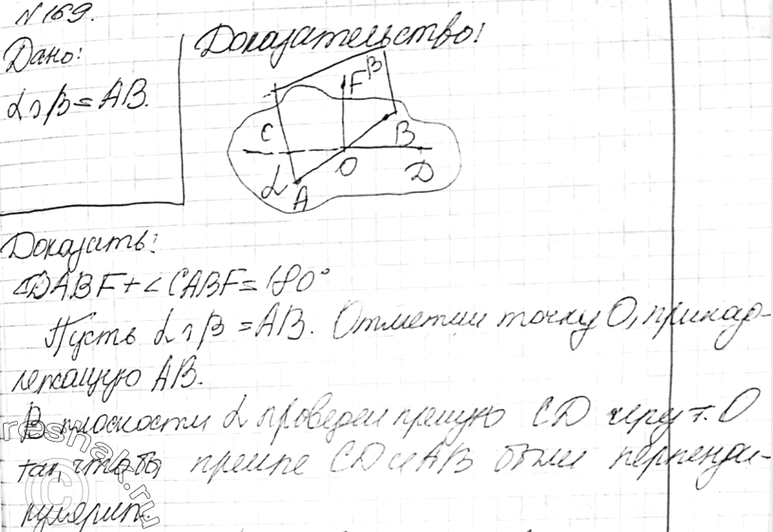 №169.
Дано:
α ∩ β = AB.
Доказательство:
β
F
C
B
α
A
O
D
Доказать:
∠DABF + ∠CABF = 180°
Пусть α ∩ β = AB. Отметим точку O, принад-
лежащую AB.
В плоскости α проведем прямую CD через т. O
так, чтобы прямые CD и AB были перпенди-
кулярны.
reshak.ru